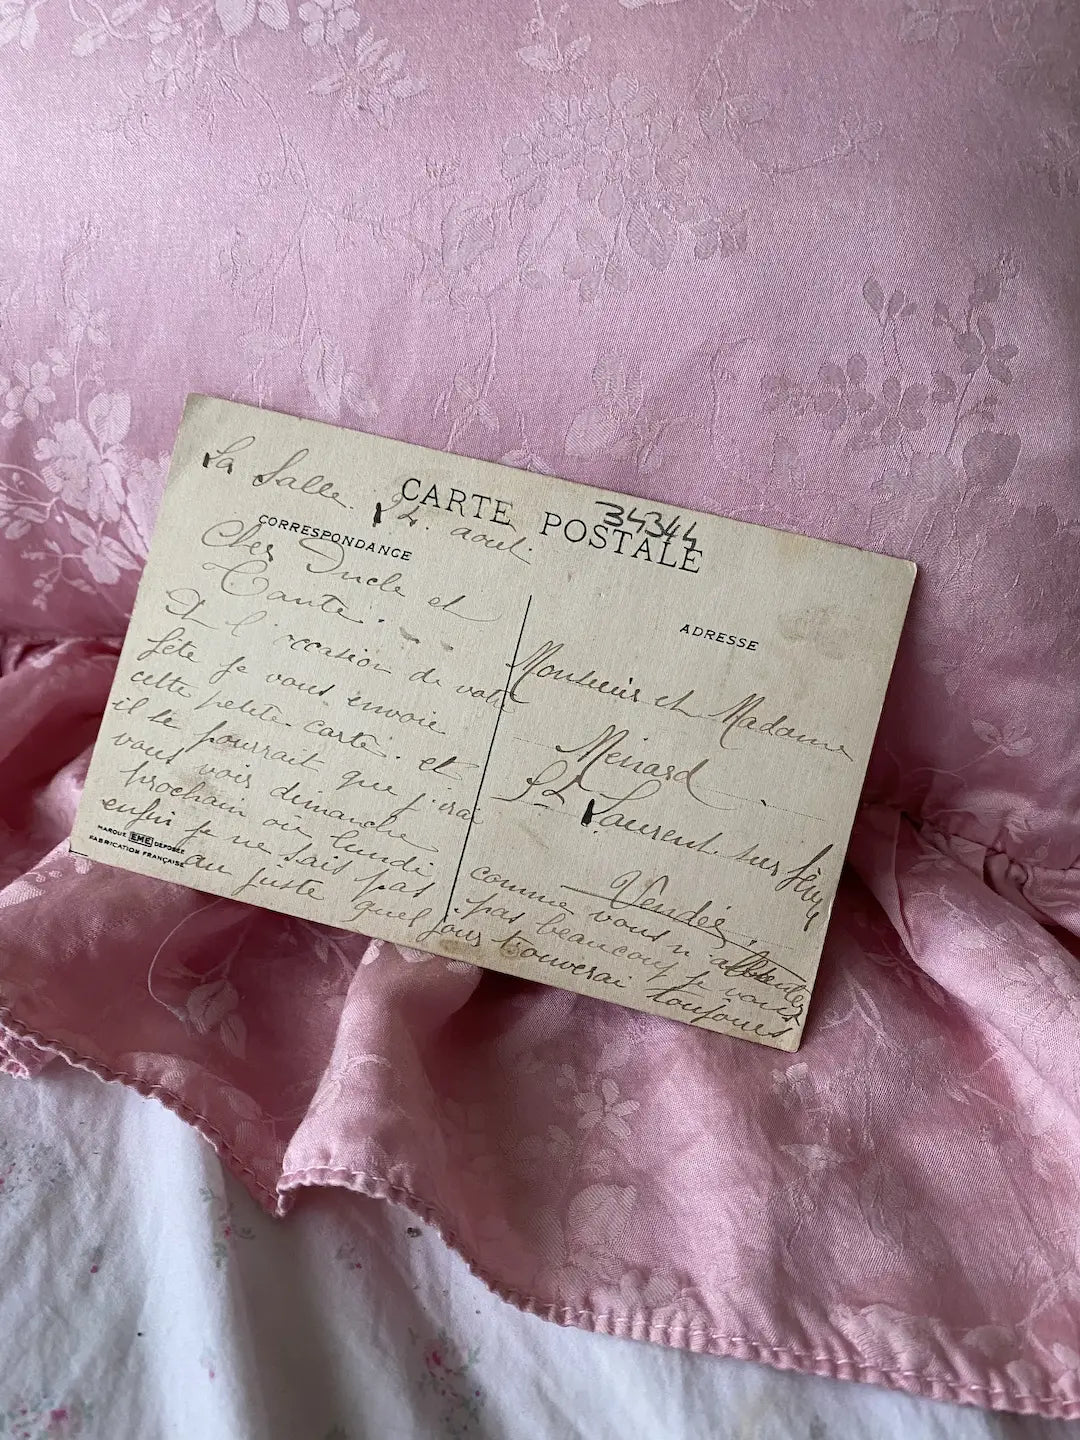 La Salle. 24. aout.
CARTE POSTALE
34344
CORRESPONDANCE
Cher Oncle et
Tante.
A l'occasion de votre
fête je vous envoie
cette petite carte. et
il se pourrait que j'irai
vous voir dimanche
prochain ou lundi
enfin je ne sais pas
au juste quel jour
comme vous n'
pas beaucoup je vous
trouverai toujours
ADRESSE
Monsieur et Madame
Menard
St Laurent. sur Sèvre
Vendée.
MARQUE EME DEPOSÉE
FABRICATION FRANÇAISE